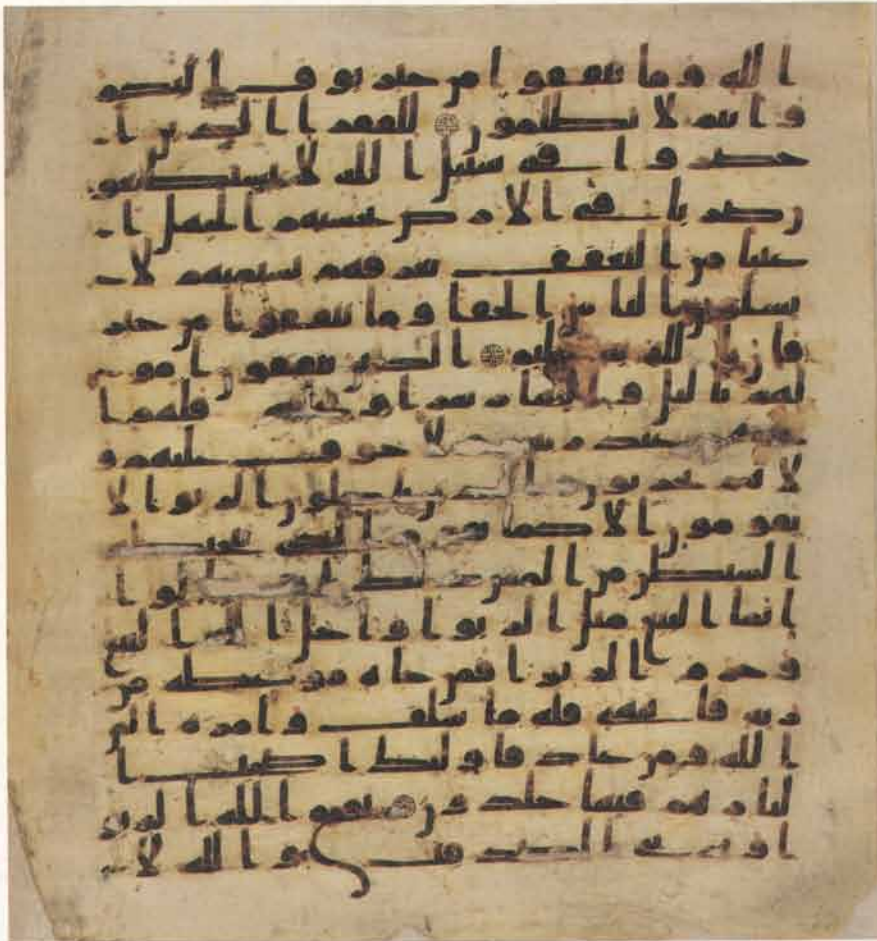 الله وما تنفقوا من خير يوف اليكم
وانتم لا تظلمون للفقرا الذين ا
حصروا في سبيل الله لا يستطيعو
ن ضربا في الارض يحسبهم الجهل ا
غنيا من التعفف تعرفهم بسيمهم لا
يسلون الناس الحفا وما تنفقوا من خير
فان الله به عليم الذين ينفقون امو
لهم باليل والنهار سرا وعلنيه فلهم ا
جرهم عند ربهم ولا خوف عليهم و
لا هم يحزنون الذين ياكلون الربوا لا
يقومون الا كما يقوم الذي يتخبطه
الشيطن من المس ذلك بانهم قالوا
انما البيع مثل الربوا واحل الله البيع
وحرم الربوا فمن جاه موعظه من
ربه فانتهى فله ما سلف وامره الى
الله ومن عاد فاولئك اصحب ا
لنار هم فيها خلدون يمحق الله الربو
ا ويربي الصدقت والله لا